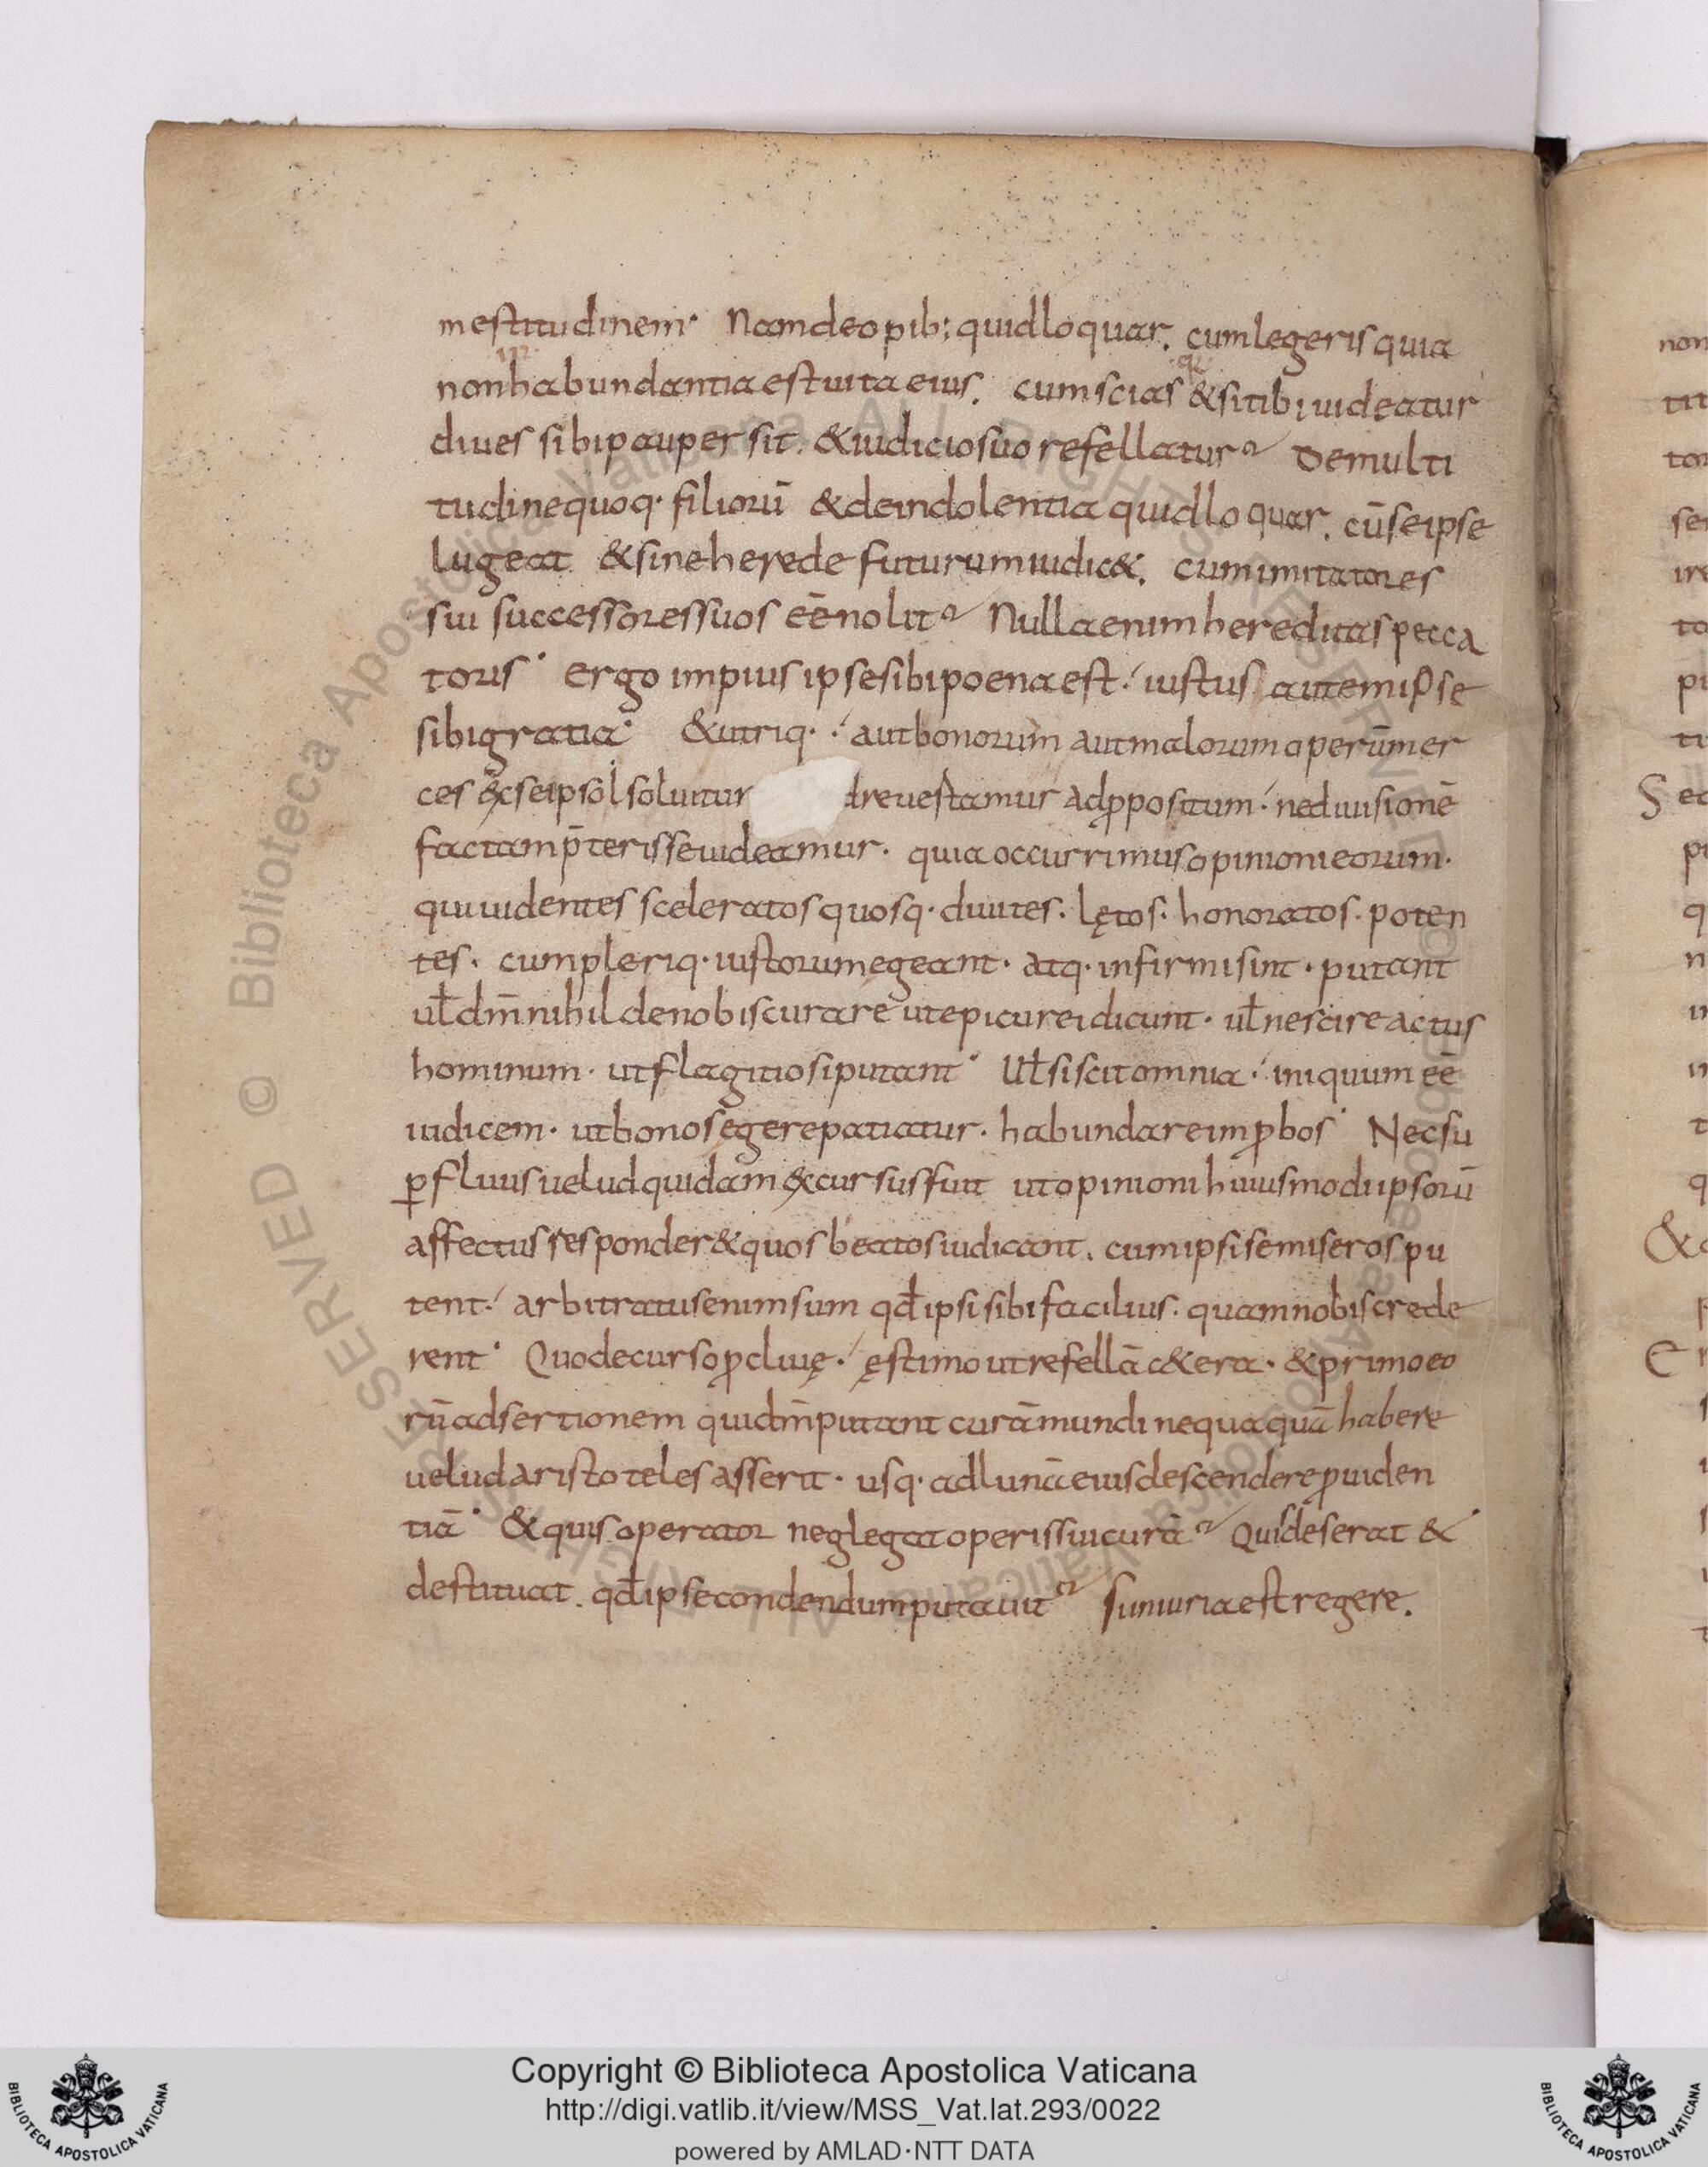 mestitudinem· Nam de opib; quid loquar, cum legeris quia
non in habundantia est uita eius, cum scias q; & si tibi uideatur
diues sibi pauper sit, & iudicio suo refellatur? De multi
tudine quoq· filiorū & de indolentia quid loquar, cū se ipse
lugeat & sine herede futurum iudic&, cum imitatores
sui successores suos eē nolit? Nulla enim hereditas pecca
toris· ergo impius ipse sibi poena est· iustus autem ipse
sibi gratia· & utriq·· aut bonorum aut malorum operū mer
ces &c se ipso soluitur d reuestamur ad ꝓpositum· ne diuisionē
factam p̄terisse uideamur· quia occurrimus opinioni eorum·
qui uidentes sceleratos quosq· diuites· lętos· honoratos· poten
tes· cum pleriq· iustorum egeant· atq· infirmi sint· putant
ul̄ dm̄ nihil de nobis curare ut epicurei dicunt· ul̄ nescire actus
hominum· ut flagitiosi putant· Ul̄ si scit omnia· iniquum eē
iudicem· ut bonos egere patiatur· habundare imꝓbos· Nec su
ꝑfluus uelud quidam excursus fuit ut opinioni huiusmodi ipsorū
affectus responder& quos beatos iudicant, cum ipsi se miseros pu
tent· arbitratus enim sum qd̄ ipsi sibi facilius· quam nobis crede
rent· Quo decurso ꝓcliuę· ęstimo ut refellā c&era· & primo eo
rū adsertionem qui dm̄ putant curā mundi nequaquā habere
uelud aristoteles asserit· usq· ad lunā eius descendere ꝓuiden
tiā· & quis operator neglegat operis sui curā? Quis deserat &
destituat, qd̄ ipse condendum putauit? Si iniuria est regere,
non
tit
tor
ser
ire
to
pi
ti
Sec
q
n
in
in
t
q
&
Er
Copyright © Biblioteca Apostolica Vaticana
http://digi.vatlib.it/view/MSS_Vat.lat.293/0022
powered by AMLAD·NTT DATA
BIBLIOTECA APOSTOLICA VATICANA
BIBLIOTECA APOSTOLICA VATICANA